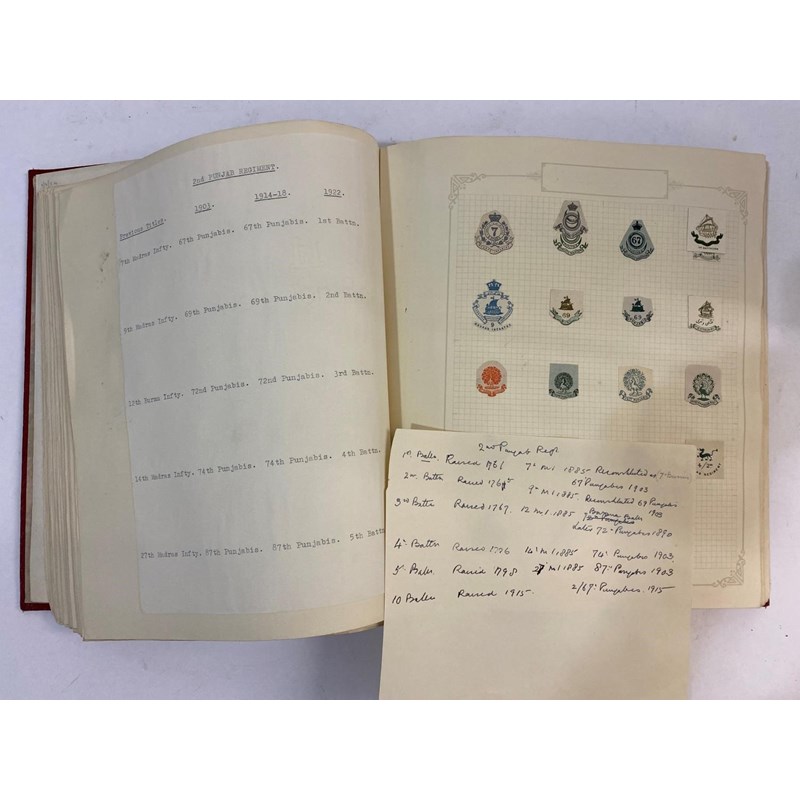 2nd PUNJAB REGIMENT.
Previous Title: 1903 1914-18. 1922.
7th Madras Infty. 67th Punjabis. 67th Punjabis. 1st Battn.
9th Madras Infty. 69th Punjabis. 69th Punjabis. 2nd Battn.
12th Burma Infty. 72nd Punjabis. 72nd Punjabis. 3rd Battn.
14th Madras Infty. 74th Punjabis. 74th Punjabis. 4th Battn.
27th Madras Infty. 87th Punjabis. 87th Punjabis. 5th Battn.
7
67
9
69
69
2nd Punjab Regt
1st Battn. Raised 1761 7th M.I. 1885 Reconstituted as
67 Punjabis 1903
2nd Battn Raised 9th M.I. 1885. Reconstituted 69 Punjabis
1903
3rd Battn Raised 1767. 12 M.I. 1885
Later 72nd Punjabis 1890
4th Battn Raised 1776 14th M.I. 1885 74th Punjabis 1903.
5th Battn Raised 1798 27th M.I. 1885 87th Punjabis 1903
10 Battn Raised 1915. 2/67th Punjabis 1915